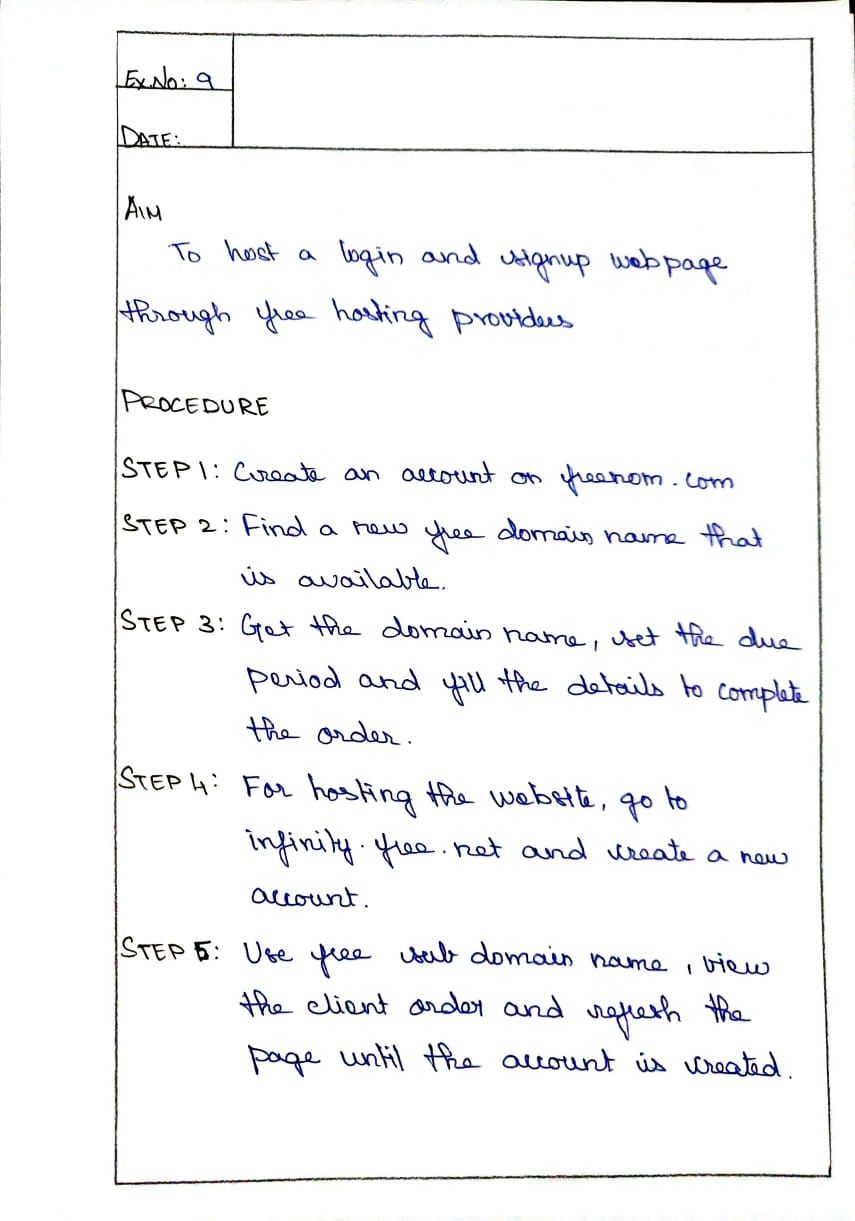 Ex.No: 9
DATE:
AIM
To host a login and signup webpage
through free hosting providers
PROCEDURE
STEP 1: Create an account on freenom.com
STEP 2: Find a new free domain name that
is available.
STEP 3: Get the domain name, set the due
period and fill the details to complete
the order.
STEP 4: For hosting the website, go to
infinity.free.net and create a new
account.
STEP 5: Use free sub domain name, view
the client order and refresh the
page until the account is created.